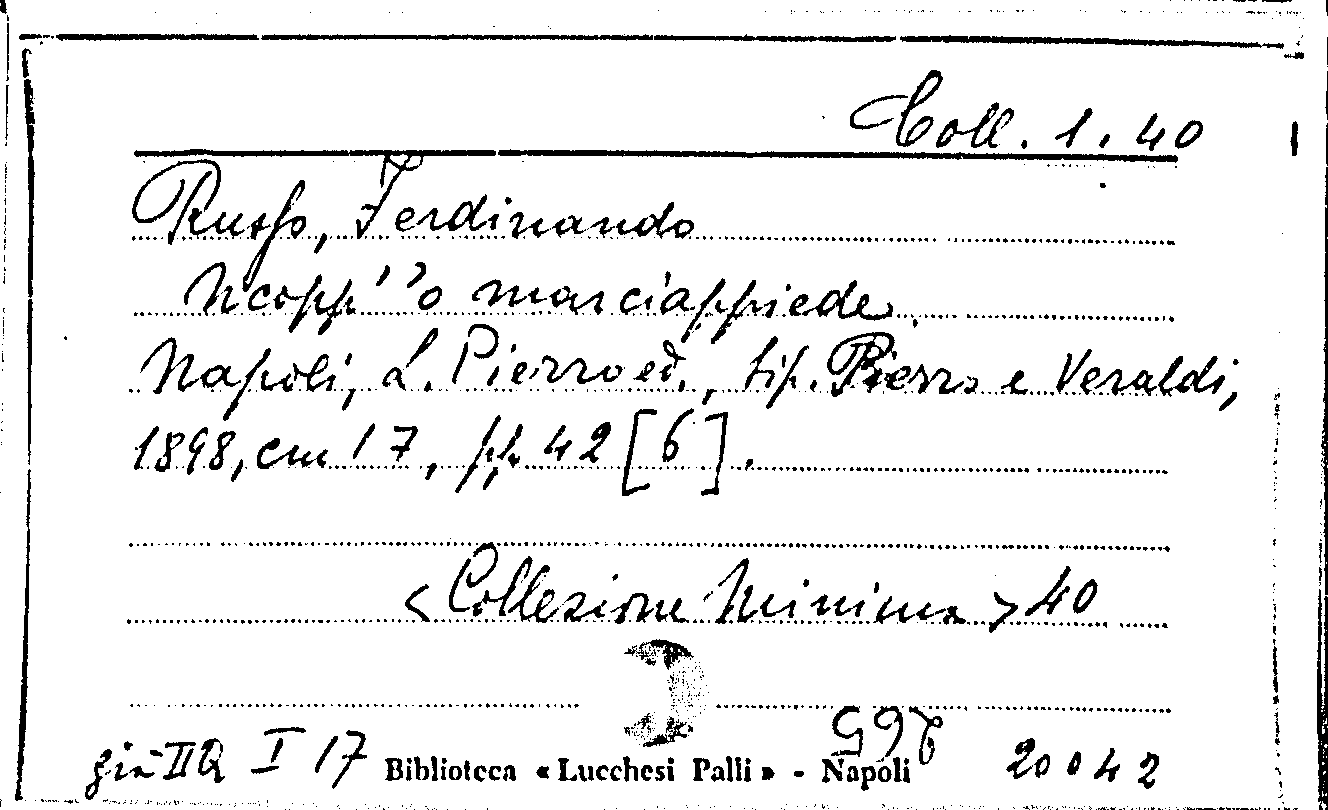 Coll. 1.40
Russo, Ferdinando
Ncopp' 'o marciappiede.
Napoli, L. Pierro ed., tip. Pierro e Veraldi,
1898, cm 17, pp. 42 [6].
<Collezione Minima> 40
già II Q I 17
Biblioteca « Lucchesi Palli » - Napoli
20042